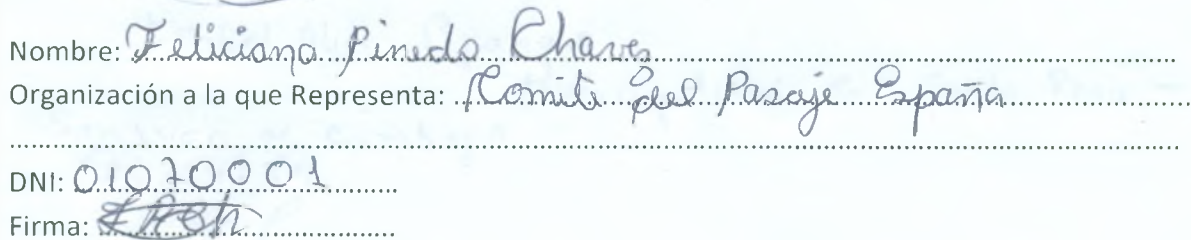 Nombre: Feliciana Pinedo Chaves
Organización a la que Representa: Comite del Pasaje España
DNI: 01070001
Firma: